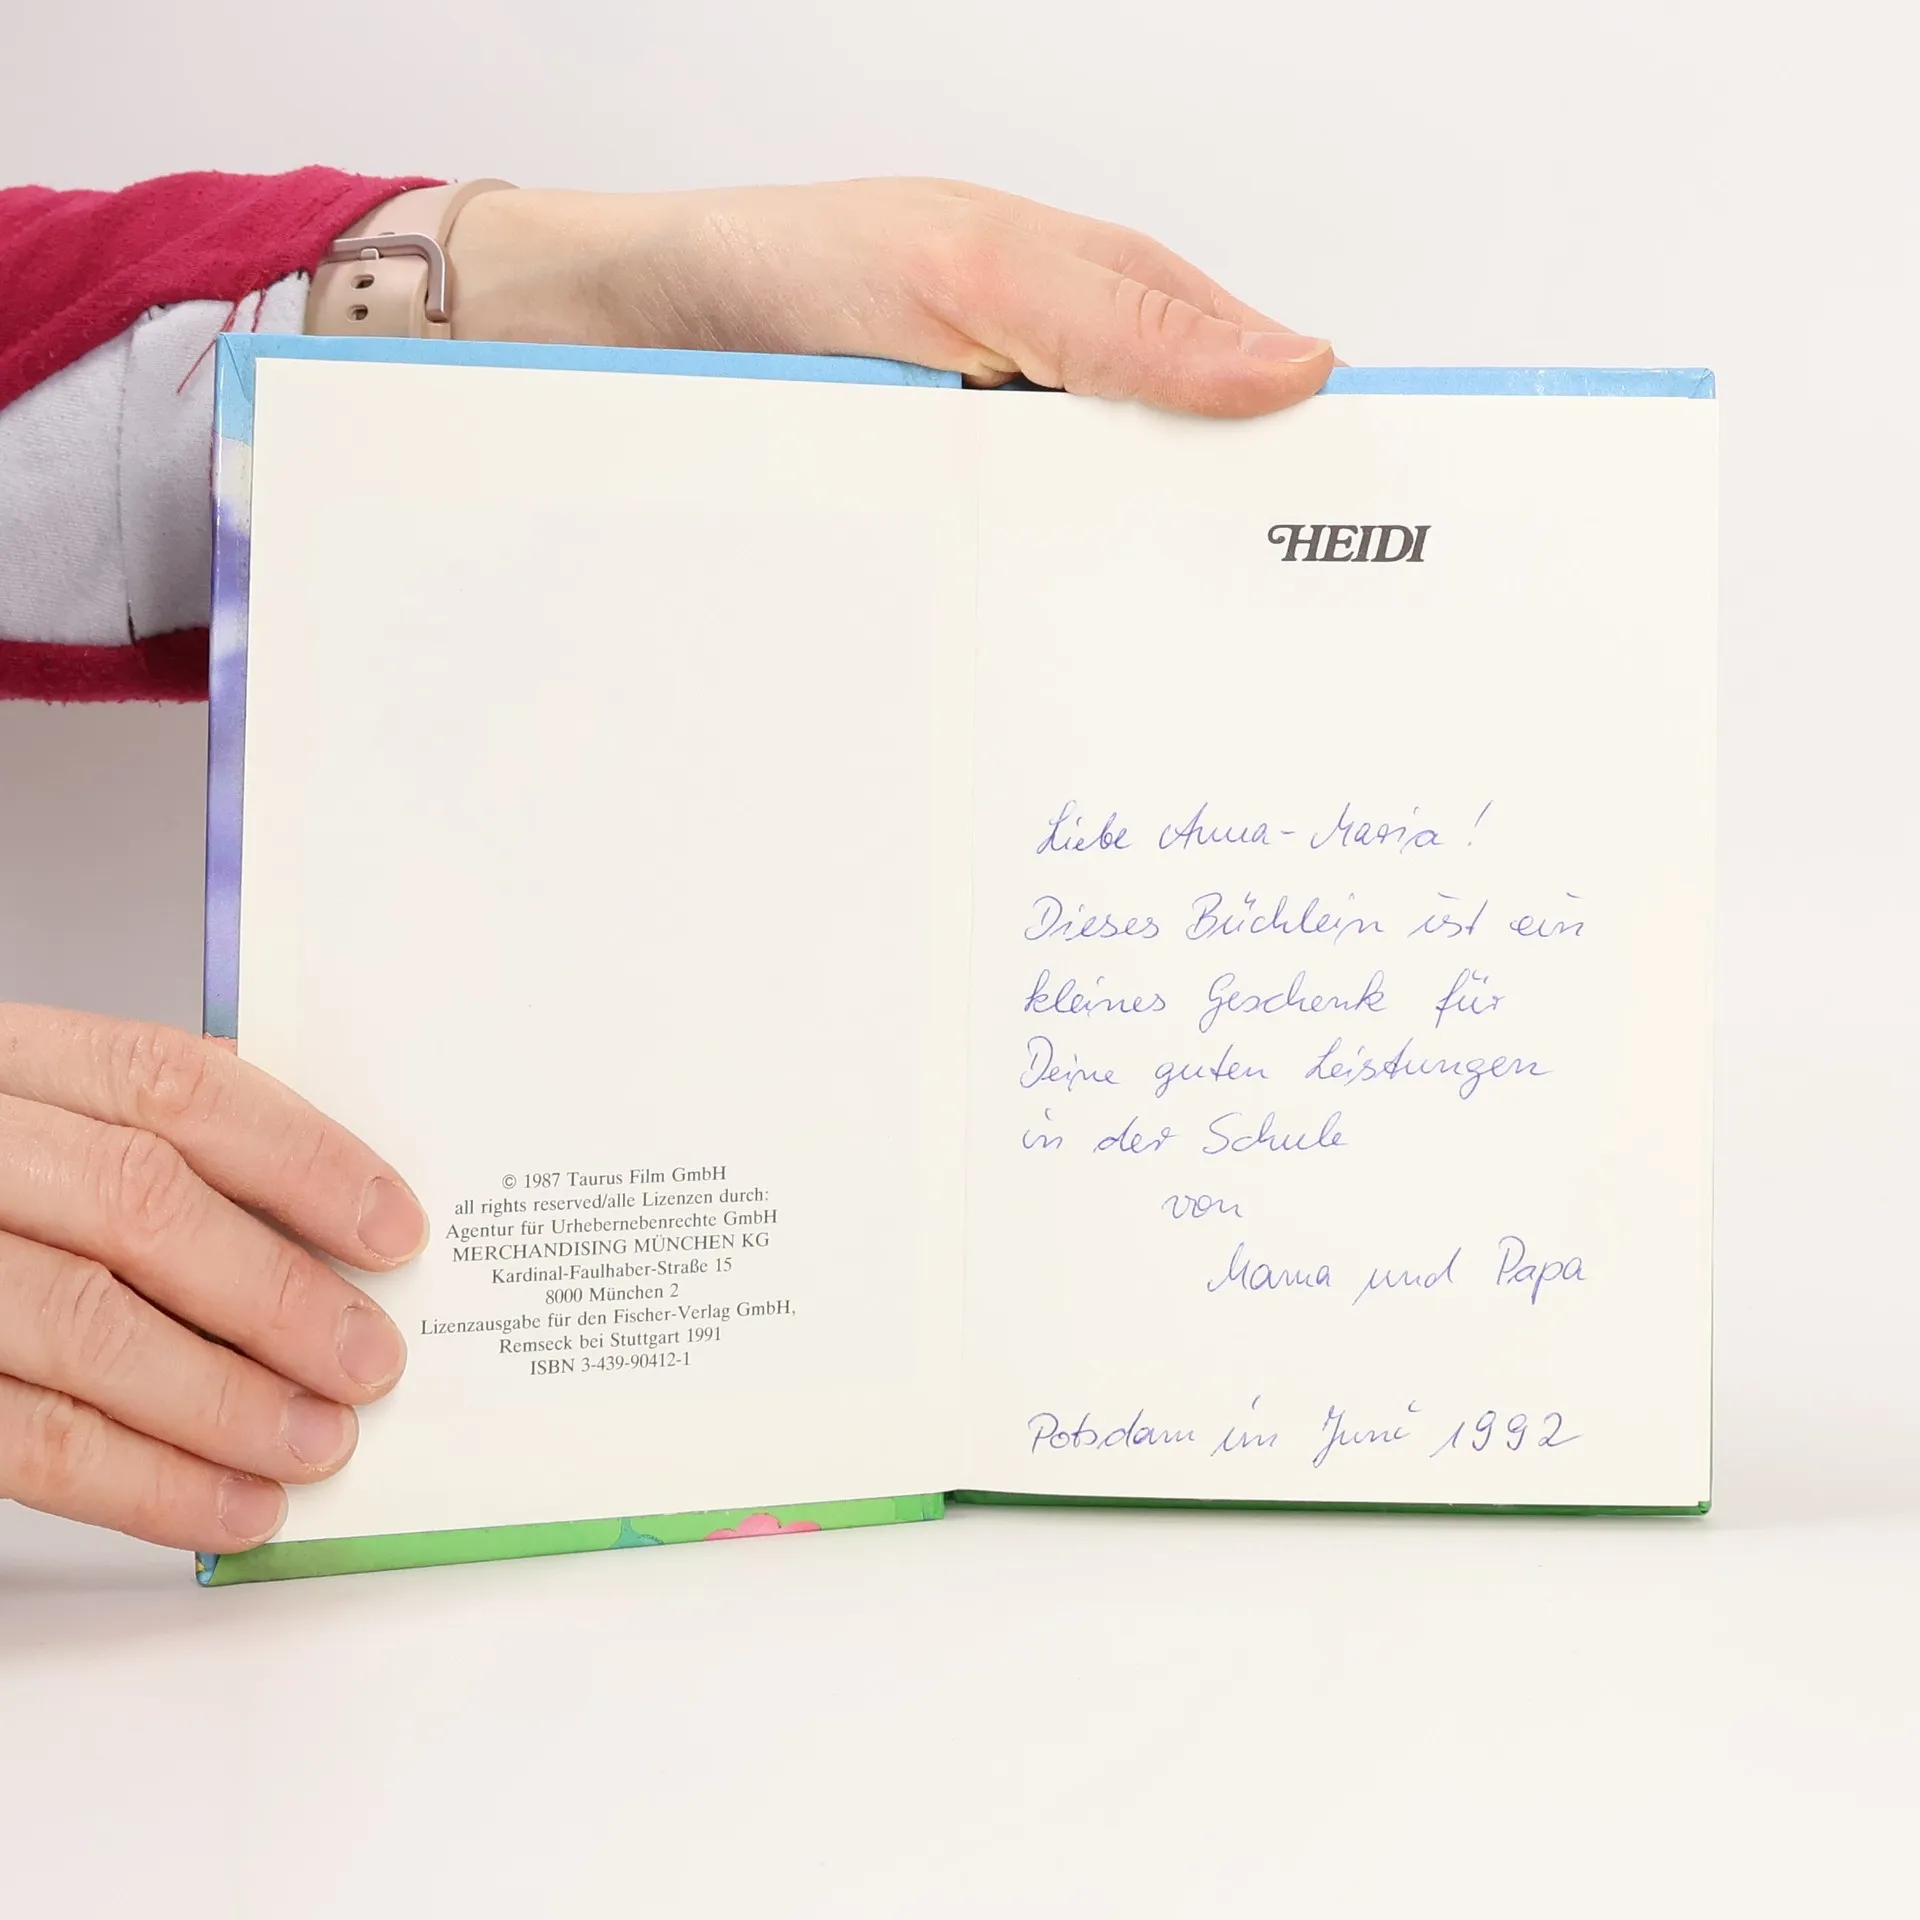 © 1987 Taurus Film GmbH
all rights reserved/alle Lizenzen durch:
Agentur für Urhebernebenrechte GmbH
MERCHANDISING MÜNCHEN KG
Kardinal-Faulhaber-Straße 15
8000 München 2
Lizenzausgabe für den Fischer-Verlag GmbH,
Remseck bei Stuttgart 1991
ISBN 3-439-90412-1
HEIDI
Liebe Anna-Maria!
Dieses Büchlein ist ein
kleines Geschenk für
Deine guten Leistungen
in der Schule
von
Mama und Papa
Potsdam im Juni 1992